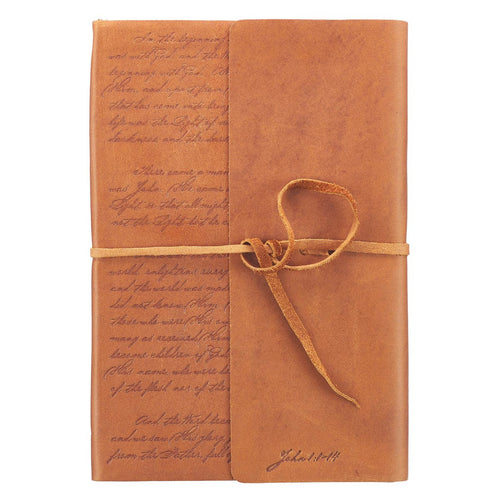 In the beginning
was with God, and the
beginning with God.
Him, and apart from
that has come into being
life was the Light of
darkness and the dark
There came a man
was John. He came
Light so that all might
not the Light but he
world, enlightens every
and the world was made
did not know Him.
those who were His own
many as received Him
become children of God
His name who were bo
of the flesh nor of the
And the Word beca
and we saw His glory,
from the Father, full of
John 1:1-14